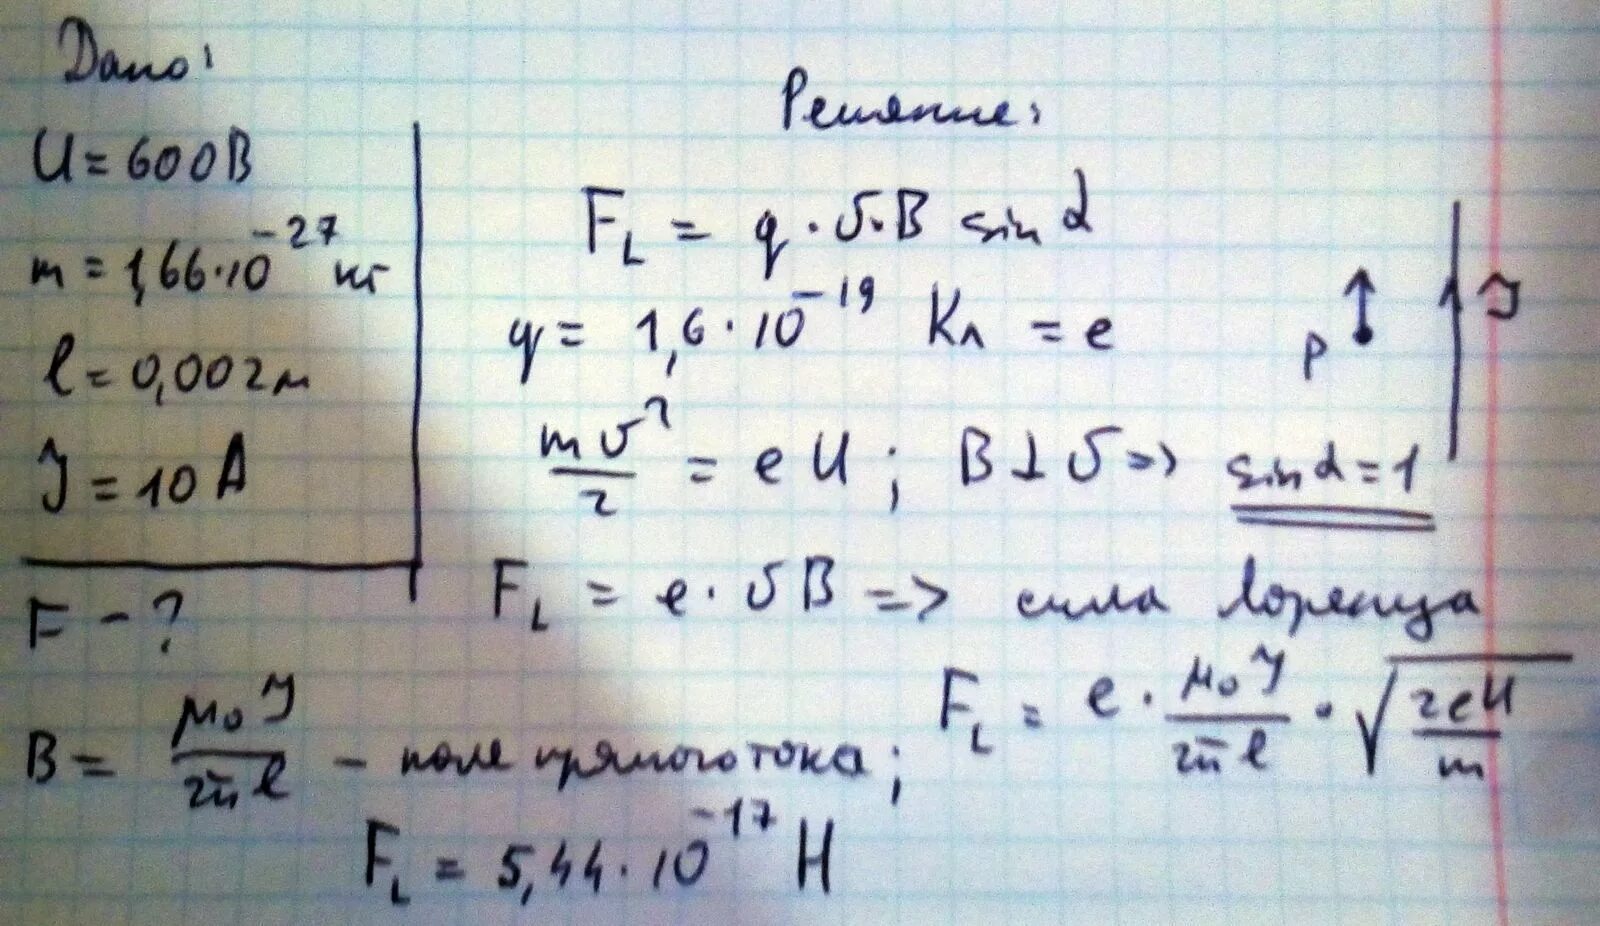 Дано:
U = 600В
m = 1,66·10⁻²⁷ кг
l = 0,002м
J = 10 А
F - ?
Решение:
F_L = q·υ·B sin α
q = 1,6·10⁻¹⁹ Кл = e
mυ²/2 = eU; B⊥υ => sin α = 1
p J
F_L = e·υB => сила Лоренца
B = μ₀J/2πl - поле прямого тока; F_L = e·μ₀J/2πl·√(2eU/m)
F_L = 5,44·10⁻¹⁷ Н